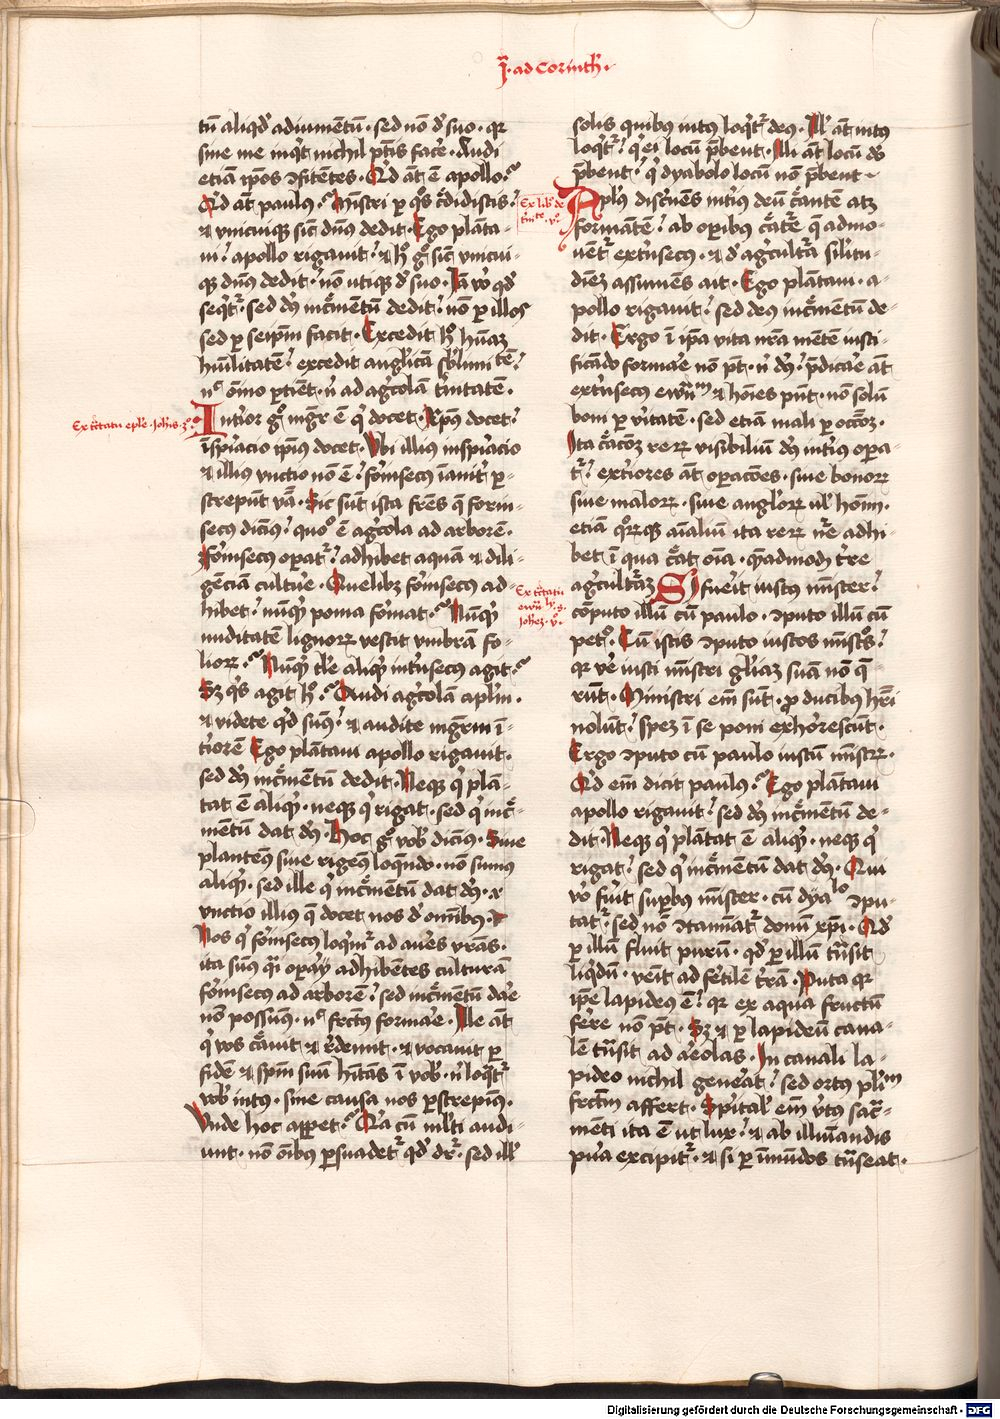 j̄ · ad Corinth̄ ·
tū aliqd̕ adiumētū · sed nō d̕ suo · qr
sine me inqt̕ nichil pt̄is fac̕e · Audi
etiā ip̄os ɔfitētes · Qd̕ āt ē apollo ·?
Qd̕ āt paulus ·? Mīstri ꝑ qs̕ c̕didistis ·
⁊ vnicuiqꝫ sic̄ dn̄s dedit · Ego plāta-
ui · apollo rigauit · ⁊ h° g° sic̄ vnicui-
qꝫ dn̄s dedit · nō utiqꝫ d̕ suo · Iā v̕o qd̕
seqt̕r · sed dꝰ inc̕mētū dedit · nō ꝑ illos
sed ꝑ seip̄m facit · Excedit h° hūaꝫ
hūilitatē · excedit angl̕icā sblimitē ·
nc̄ om̄ino ꝑtiēt · n̄ ad ag̕colā t̕nitatē ·
Ex t̕ctatu eple · Joh̄is · 3° ·
Int̕ior g° mgr̄ ē q̕ docet · Xp̄us docet ·
īspiracio ip̄ius docet · Vbi illius inspiracio
⁊ illius vnctio nō ē · for̄insecus īanit̕ ꝑ-
strepūt v̄ba · Sic sūt ista fr̄es q̄ forin-
secus dicim̄ꝰ · quo° ē ag̕cola ad arborē ·
for̄insecus oꝑat̕r · adhibet aquā ⁊ dili-
gēciā cult̕ue · Quelibꝫ for̄insecus ad-
hibet · nūqd̕ poma format ·? Nūqd̕
nuditatē lignoꝝ vestit vmbrā fo-
lioꝝ ·? Nūqd̕ tl̕e aliqd̕ int̕insecus agit ·?
Sꝫ qs̕ agit h° ·? Audi ag̕colā apl̕m ·
⁊ videte qd̕ sumꝰ · ⁊ audite mgr̄m ī-
t̕iorē Ego plātaui apollo rigauit ·
sed dꝰ inc̕mētū dedit · Neqꝫ q̕ plā-
tat ē aliqd̕ · neqꝫ q̕ rigat · sed q̕ inc̕-
mentū dat dꝰ · Hoc g° vob̕ dicimꝰ · Siue
plantem̄ꝰ siue rigem̄ꝰ loquēdo · nō sumus
aliqd̕ · sed ille q̕ inc̕mētū dat dꝰ · ⁊
vnctio illius q̄ docet nos d̕ om̄ibus ·
Nos q̕ for̄insecus loqm̕r ad aures vr̄as ·
ita sumꝰ qi̕ oꝑarij adhibētes culturā
for̄insecus ad arborē · sed inc̕mētū dar̕e
nō possumꝰ · nc̄ fr̄ctus formar̕e · Ille āt
q̕ vos c̕auit ⁊ r̕demit · ⁊ vocauit ꝑ
fidē ⁊ sp̄m suū h̄itās ī vob̕ · n̄ loqt̕r
vob̕ intus · sine causa nos ꝑstrepimꝰ ·
Vnde hoc apꝑet ·? Qr̕a cū ml̕ti audi-
unt · nō oīb̕us ꝑsuadet̕r qd̕ dr̄ · sed ill̕
solis quibus intus loqt̕r deus · Ill̕ āt intus
loqt̕r · q̕ ei locū p̄bent · Illi āt locū do
p̄bent · q̕ dyabolo locū nō p̄bent
Ex lib̕ de
t̕nitate · v° ·
Apl̕us discernēs int̕ius deū c̕antē atqꝫ
formātē · ab oꝑibus c̕at̕e q̄ admo-
uēt̕r extr̕insecus · ⁊ d̕ ag̕cult̕ra sil̕itu-
dieꝫ assumēs ait · Ego plātaui · a-
pollo rigauit · sed deus inc̕mētū de-
dit · Ergo ī ip̄a vita nr̄a mētē iusti-
ficādo formar̕e nō pt̄ · n̄ dꝰ · p̄dicar̕e āt
extr̕insecus ewāᵐ ⁊ hoīes pn̄t · nō solū
boni ꝑ v̕itatē · sed etiā mali ꝑ occōeꝫ ·
Ita c̕acōeꝫ reꝝ visibiliū dꝰ int̕ius oꝑa-
t̕r · ext̕iores āt oꝑacōes · siue bonoꝝ
siue maloꝝ · siue angl̕oꝝ ul̕ hoīm ·
etiā qꝝcūqꝫ aīaliū ita reꝝ nr̄e adhi-
bet ī qua c̕at oīa · qēadmodꝫ tr̄re
ag̕cult̕raꝫ
Ex t̕ctatu
ewā h̄ · 9 ·
Joh̄eꝫ · v° ·
Si fuerit iustus mīster ·
cōputo illū cū paulo · ɔputo illū cū
pet° · Cū istis ɔputo iustos mīstos ·
qr v̕e iusti mīstri gl̕iaꝫ suā nō q̄-
rūt · Ministri em̄ sūt · ꝓ ducibus hr̄i
nolūt · speꝫ ī se poni exhorrescūt ·
Ergo ɔputo cū paulo iustū mīstꝝ ·
Qd̕ em̄ dicit paulus ·? Ego plātaui
apollo rigauit · sed dꝰ inc̕mētū de-
dit · Neqꝫ q̕ plātat ē aliqd̕ · neqꝫ q̕
rigat · sed q̕ inc̕mētū dat dꝰ · Qui
v̕o fuit suꝑbus mīster · cū dyalo ɔpu-
tat̕r · sed nō ɔtamīat̕r donū xp̄i · Qd̕
ꝑ illū fluit purū · qd̕ ꝑ illū trāsit
liqd̕ū · venit ad fertilē t̕rā · Puta qr
ip̄e lapideus ē · qr ex aqua fructū
ferre nō pt̄ · Sꝫ ⁊ ꝑ lapideū cana-
lē trāsit ad areolas · In canali la-
pideo nichil gen̕at · sed ortus pl̕imᵐ
fr̄ctm affert · Spiritalꝭ em̄ v̕tus sac̕-
mēti ita ē ut lux · ⁊ ab illuīandis
pura excipit̕r · ⁊ si ꝑ īmūdos trāseat ·
Digitalisierung gefördert durch die Deutsche Forschungsgemeinschaft - DFG